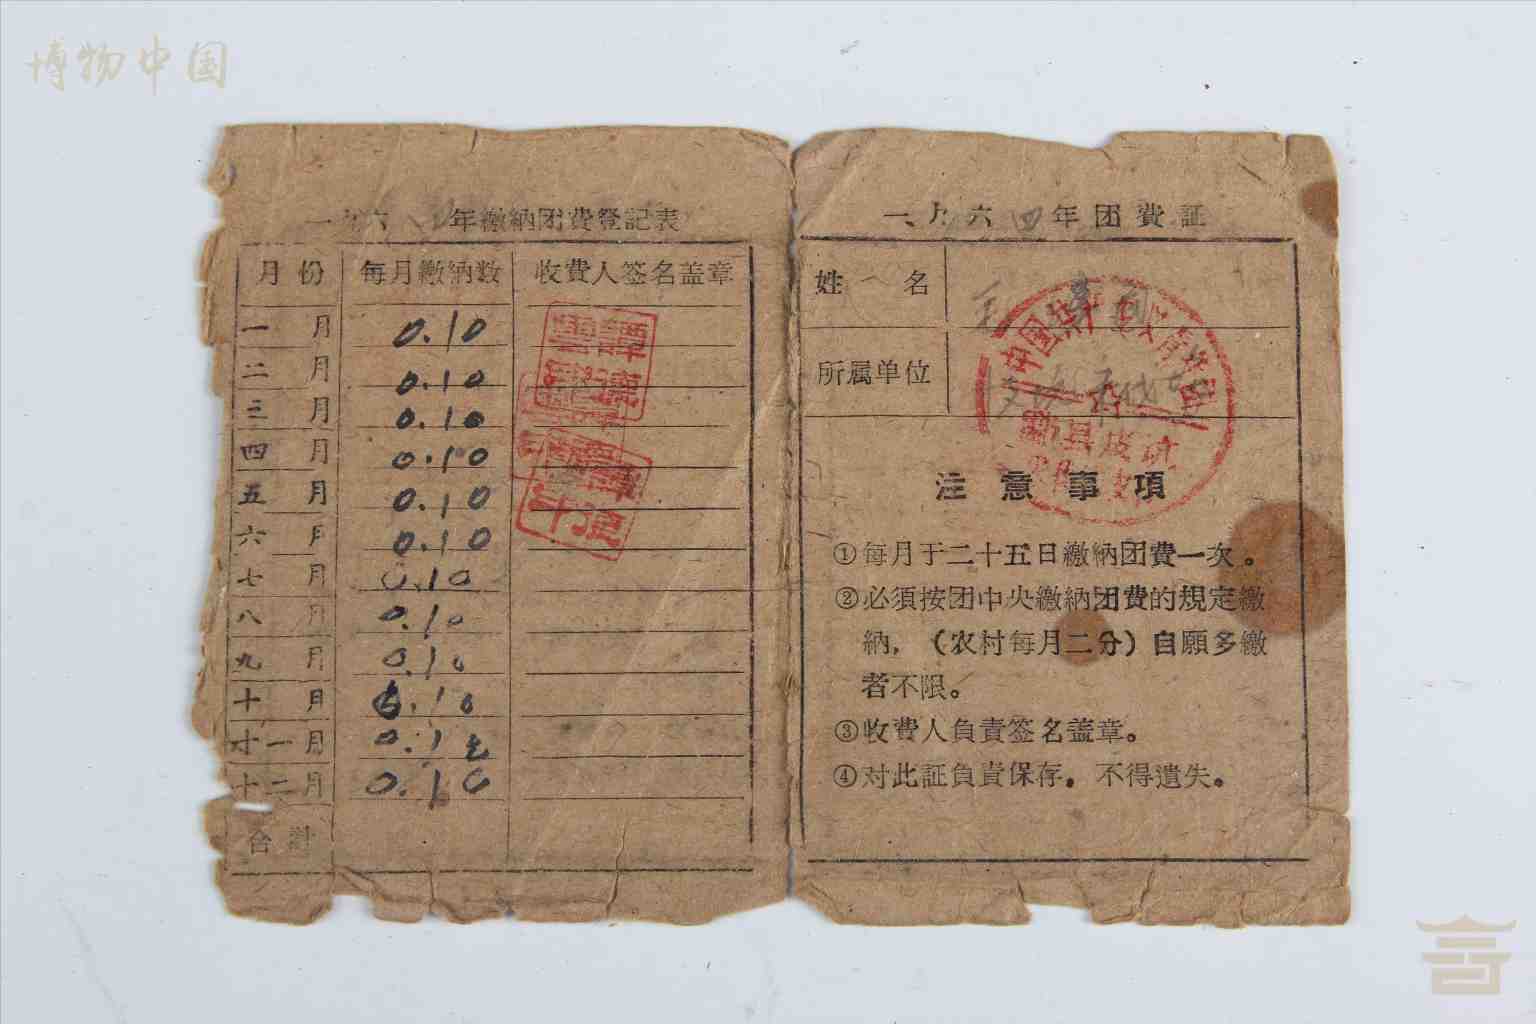 博物中国
一九六 年缴纳团费登記表
月份 每月缴纳数 收費人签名盖章
一月 0.10
二月 0.10
三月 0.10
四月 0.10
五月 0.10
六月 0.10
七月 0.10
八月 0.10
九月 0.10
十月 0.10
十一月 0.1
十二月 0.10
合計
一九六四年团費証
姓名
所属单位
中国共产主义青年团
县皮坑
注意事項
①每月于二十五日缴纳团费一次。
②必須按团中央缴纳团费的規定缴
納，（农村每月二分）自願多缴
者不限。
③收費人負責签名盖章。
④对此証負責保存。不得遺失。